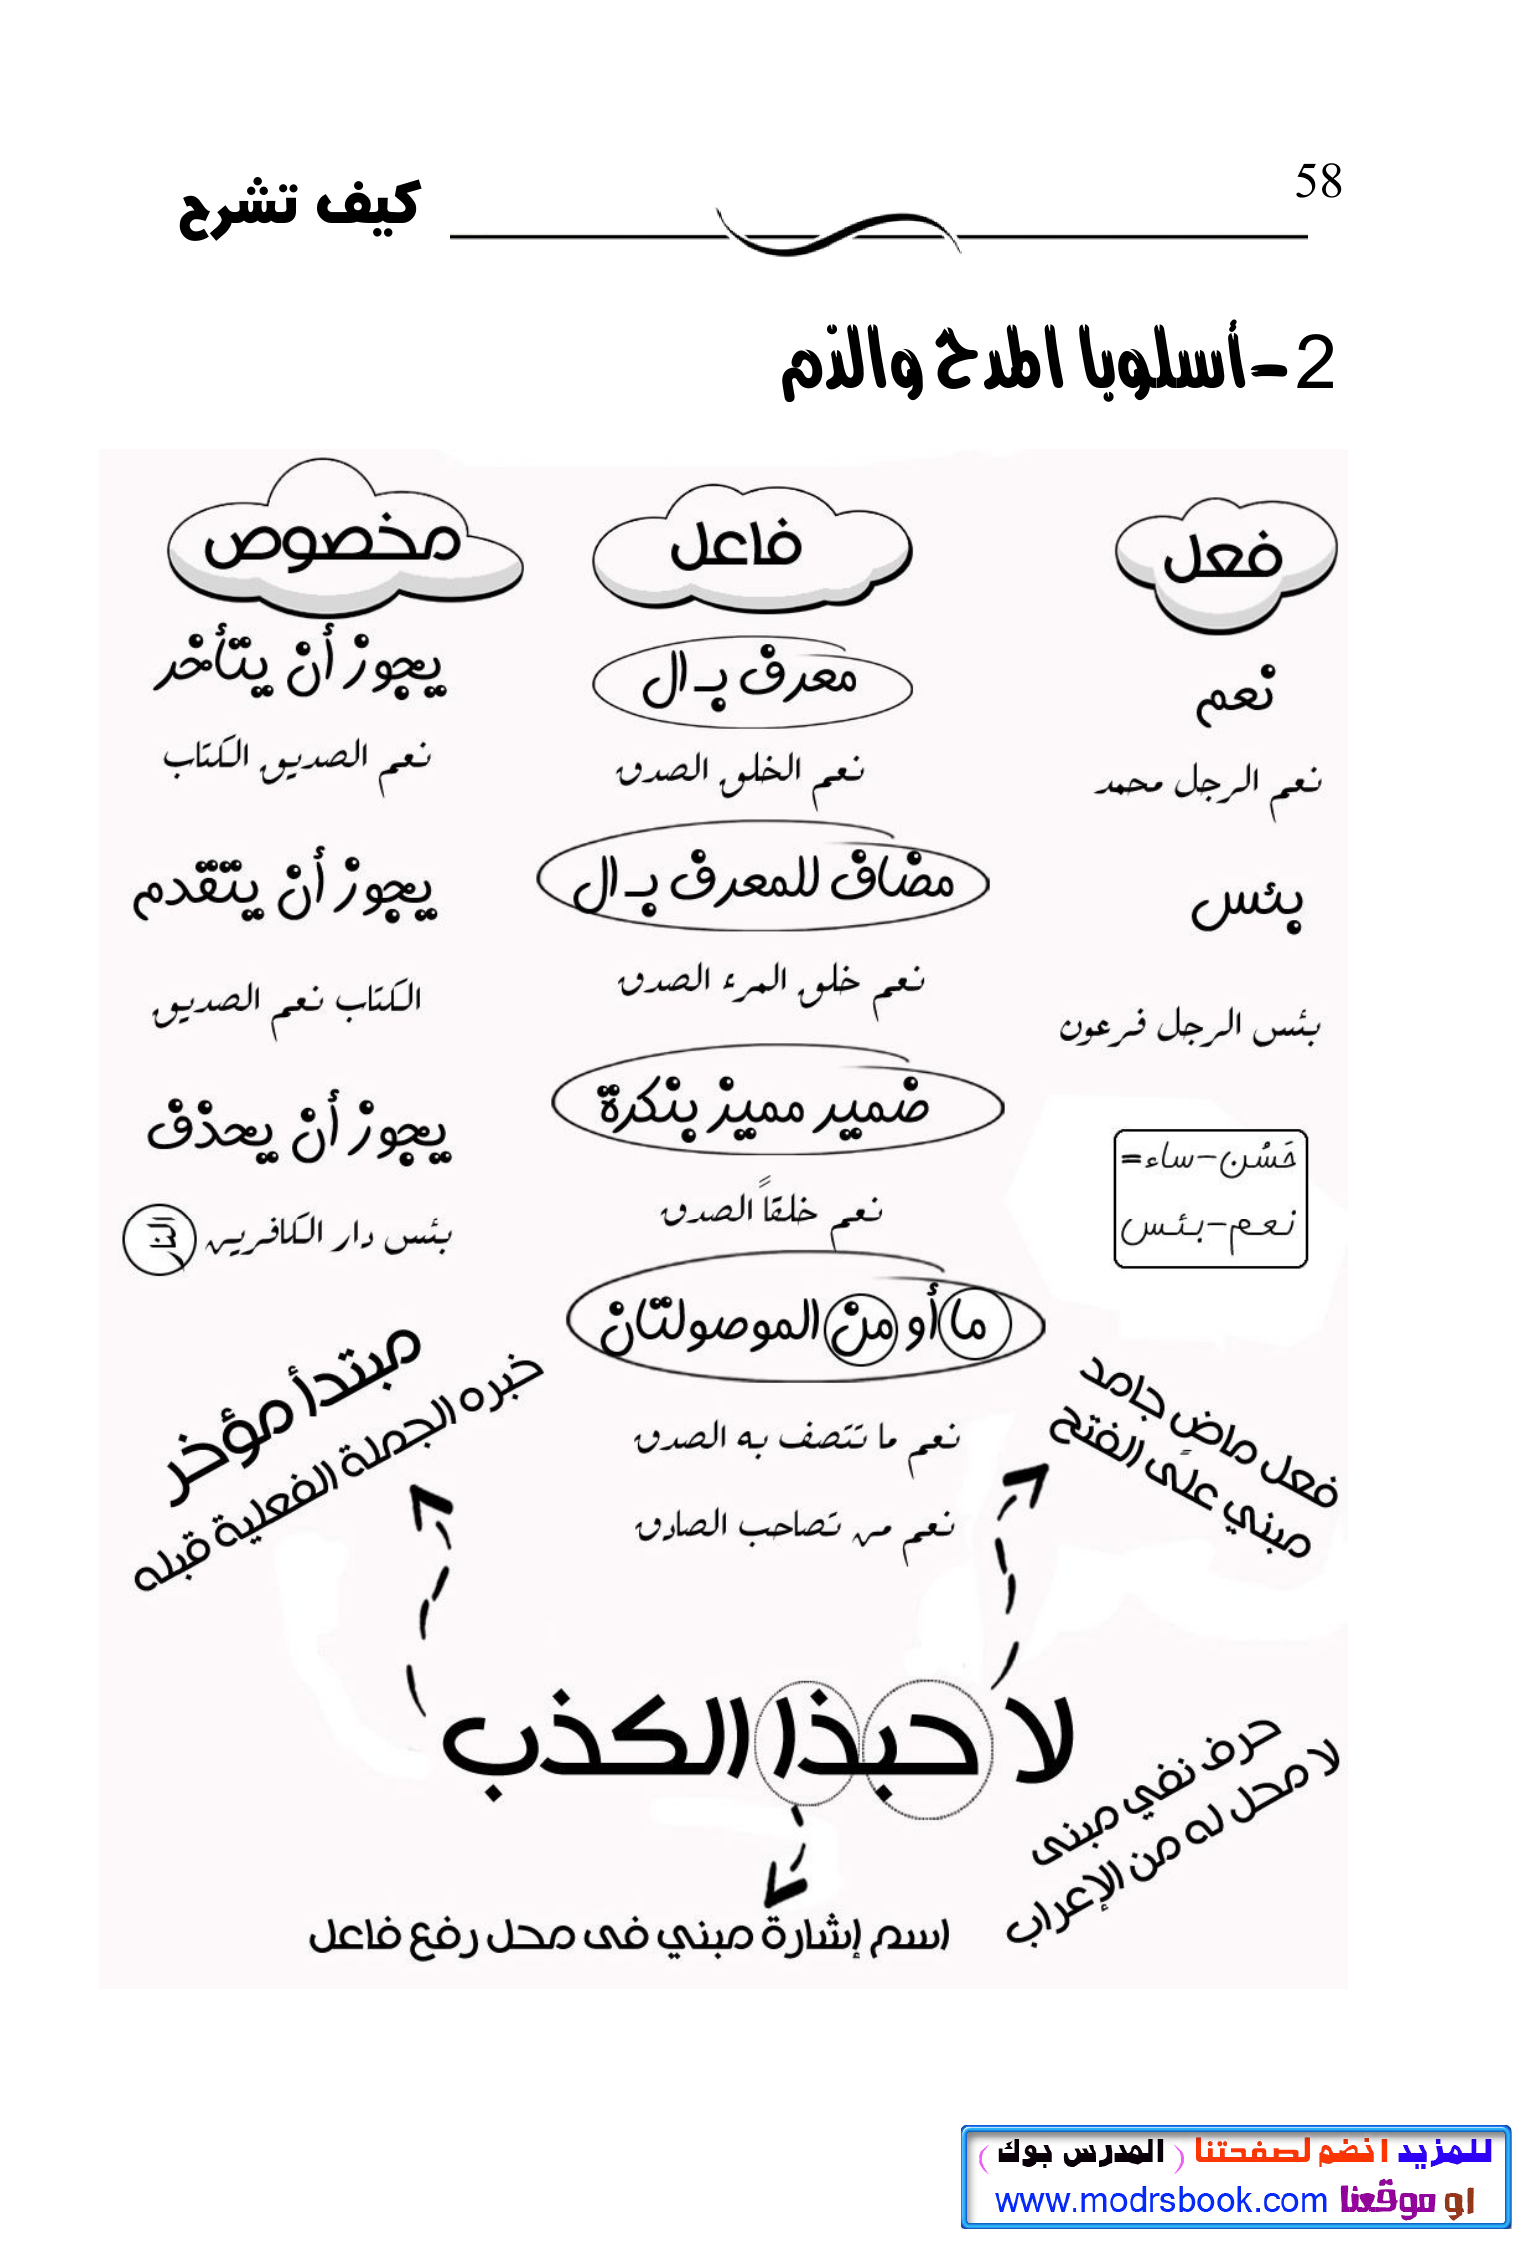 58
كيف تشرح
2-أسلوبا المدح والذم
فعل
نعم
نعم الرجل محمد
بئس
بئس الرجل فرعون
حَسُن-ساء=
نعم-بئس
فاعل
معرف بـ ال
نعم الخلق الصدق
مضاف للمعرف بـ ال
نعم خلق المرء الصدق
ضمير مميز بنكرة
نعم خلقاً الصدق
ما أو من الموصولتان
نعم ما تتصف به الصدق
نعم من تصاحب الصادق
مخصوص
يجوز أن يتأخر
نعم الصديق الكتاب
يجوز أن يتقدم
الكتاب نعم الصديق
يجوز أن يحذف
بئس دار الكافرين النار
فعل ماضٍ جامد
مبني على الفتح
مبتدأ مؤخر
خبره الجملة الفعلية قبله
لا حبذا الكذب
حرف نفي مبنى
لا محل له من الإعراب
اسم إشارة مبني فى محل رفع فاعل
للمزيد انضم لصفحتنا ( المدرس بوك )
او موقعنا www.modrsbook.com